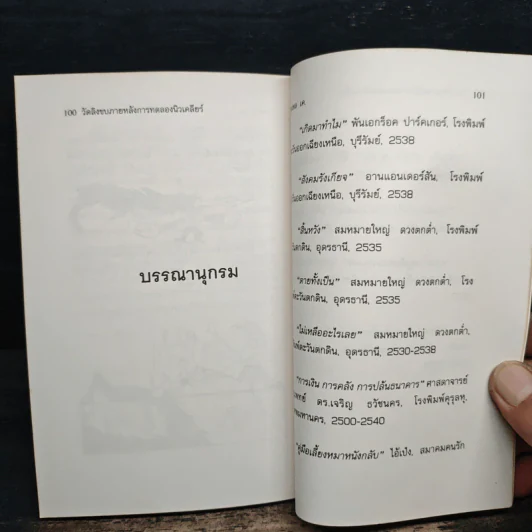 100 วัดลิงขบภายหลังการทดลองนิวเคลียร์
บรรณานุกรม
101
"เกิดมาทำไม" พันเอกร็อค ปาร์คเกอร์, โรงพิมพ์
ออกเฉียงเหนือ, บุรีรัมย์, 2538
"สังคมรังเกียจ" อานแอนเดอร์สัน, โรงพิมพ์
ออกเฉียงเหนือ, บุรีรัมย์, 2538
"สิ้นหวัง" สมหมายใหญ่ ดวงตกต่ำ, โรงพิมพ์
ตกดิน, อุดรธานี, 2535
"ตายทั้งเป็น" สมหมายใหญ่ ดวงตกต่ำ, โรง
ตะวันตกดิน, อุดรธานี, 2535
"ไม่เหลืออะไรเลย" สมหมายใหญ่ ดวงตกต่ำ,
ตะวันตกดิน, อุดรธานี, 2530-2538
"การเงิน การคลัง การปล้นธนาคาร" ศาสตาจารย์
ดร.เจริญ ธวัชนคร, โรงพิมพ์คุรุลหุ,
2500-2540
"คู่มือเลี้ยงหมาหนังกลับ" ไอ้เป๋ง, สมาคมคนรัก